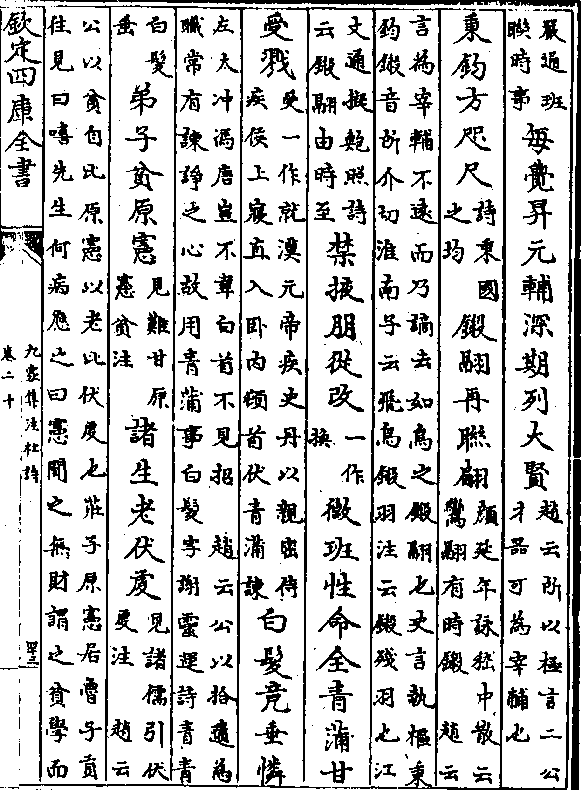 嚴通班聯時事每覺昇元輔深期列大賢趙云所以極言二公才品可為宰輔也
秉鈞方咫尺詩秉國之均鎩翮再聯翩顏延年詠嵇中散云鸞翮有時鎩 趙云
言為宰輔不遠而乃謫去如鳥之鎩翮也史言執樞秉
鈞鎩音所介切淮南子云飛鳥鎩羽注云鎩殘羽也江
文通擬鮑照詩云鎩翮由時至禁掖朋從改一作換微班性命全青蒲甘
受戮受一作就漢元帝疾史丹以親密侍疾侯上寢直入卧内頓首伏青蒲諫白髮竟垂憐
左太冲馮唐豈不偉白首不見招 趙云公以拾遺為
職常有諫諍之心故用青蒲事白髮字謝靈運詩青青
白髮垂弟子貧原憲見難甘原憲貧注諸生老伏虔見諸儒引伏虔注 趙云
公以貧自比原憲以老比伏虔也莊子原憲居魯子貢
往見曰嘻先生何病應之曰憲聞之無財謂之貧學而
欽定四庫全書
九家集注杜詩
卷二十
四三